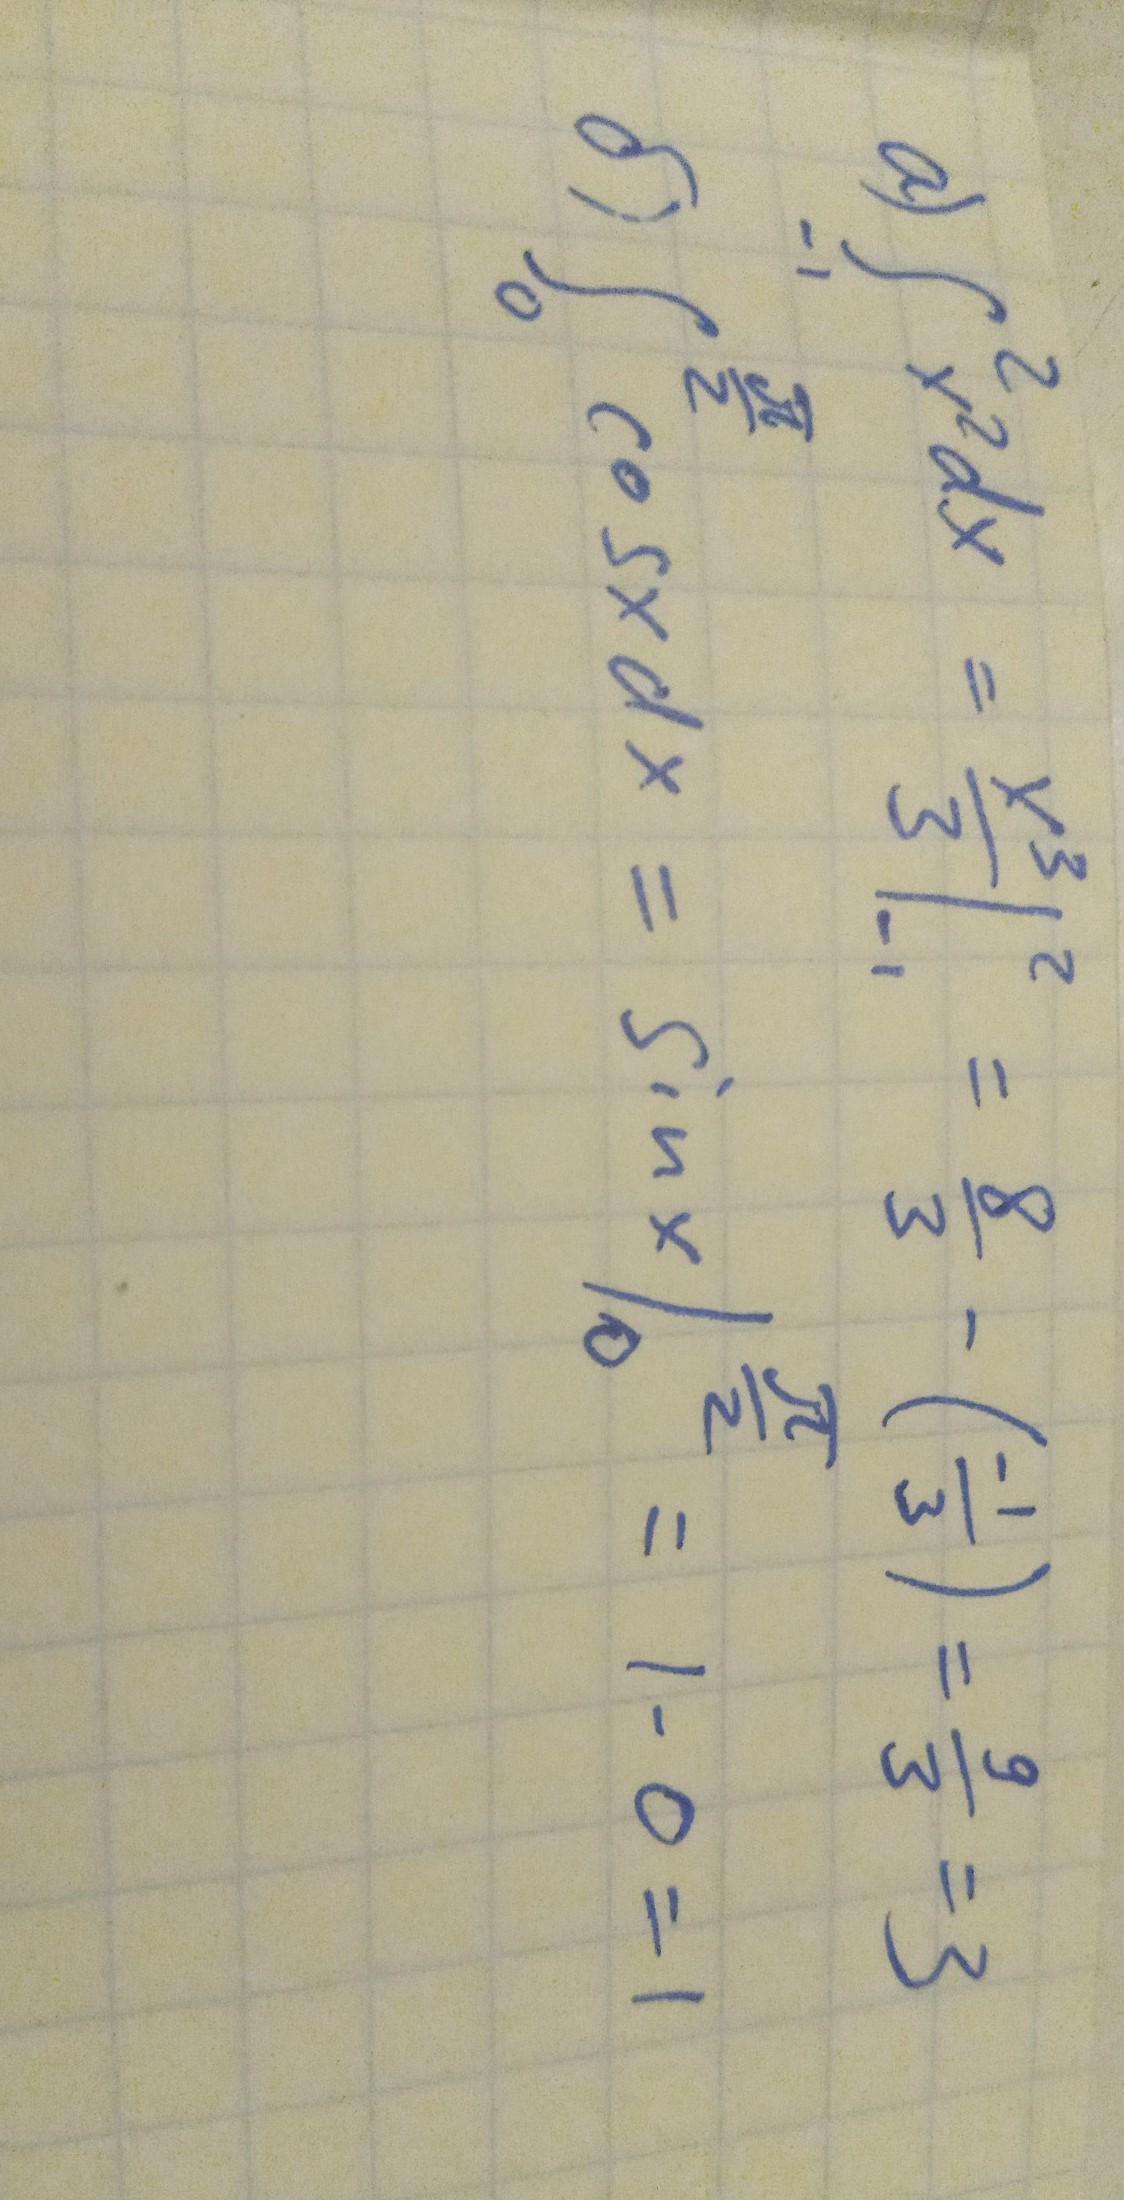 а) ∫₋₁² x² dx = x³/3 |₋₁² = 8/3 - (-1/3) = 9/3 = 3
б) ∫₀^(π/2) cos x dx = sin x |₀^(π/2) = 1 - 0 = 1